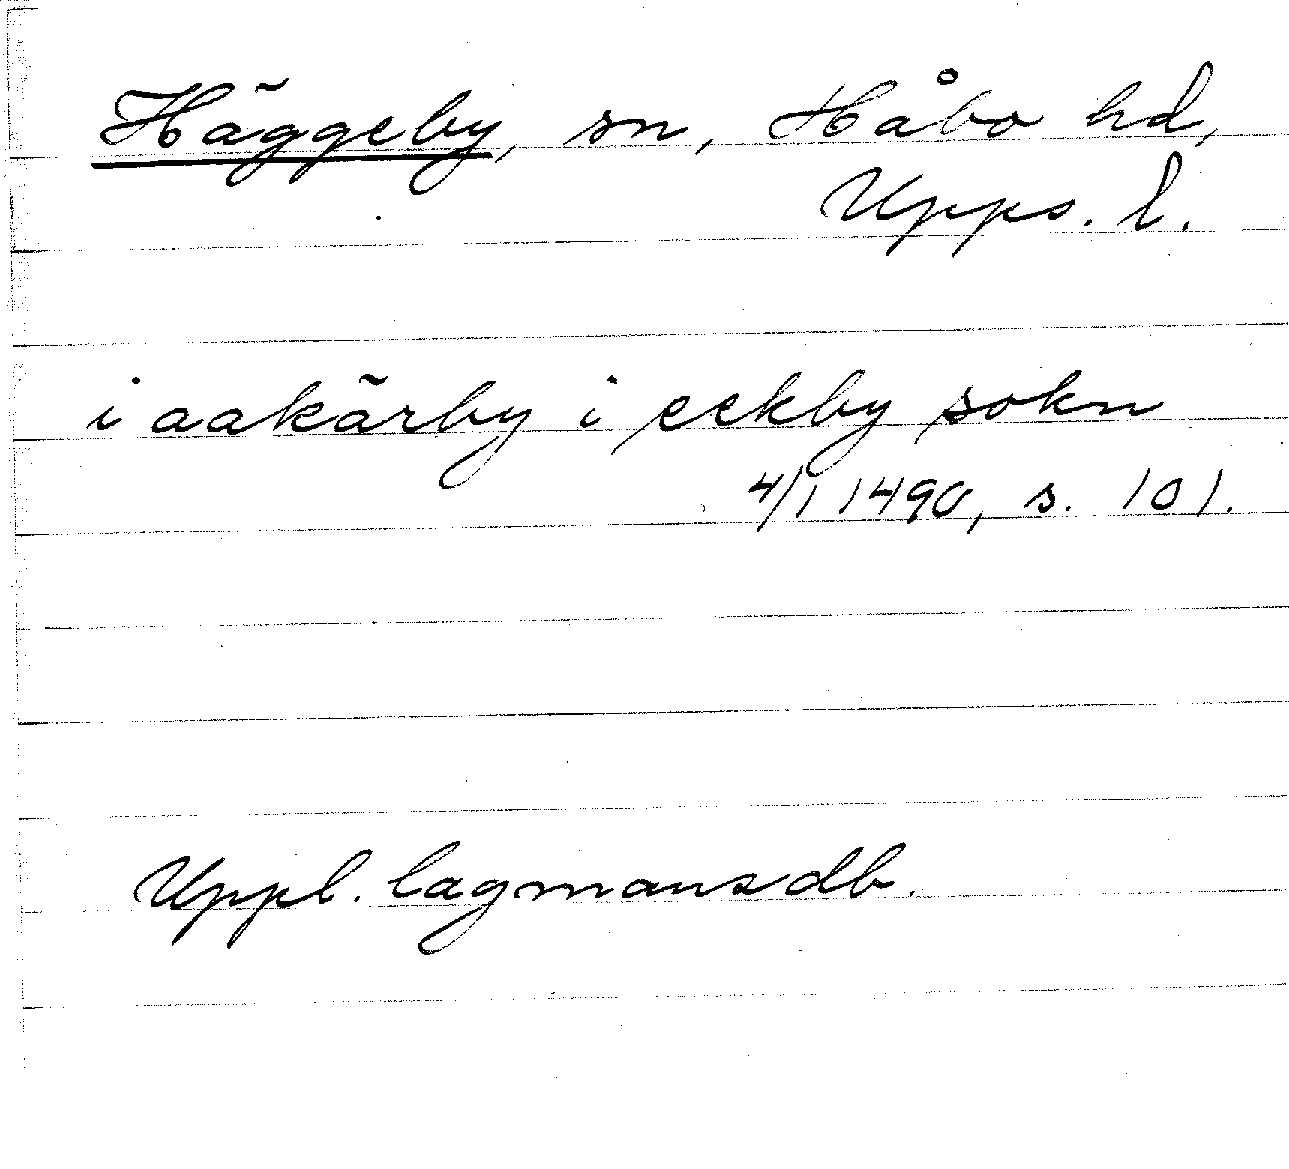 Häggeby, sn, Håbo hd,
Upps. l.
i aakärby i eckby sokn
4/1 1490, s. 101.
Uppl. lagmansdb.